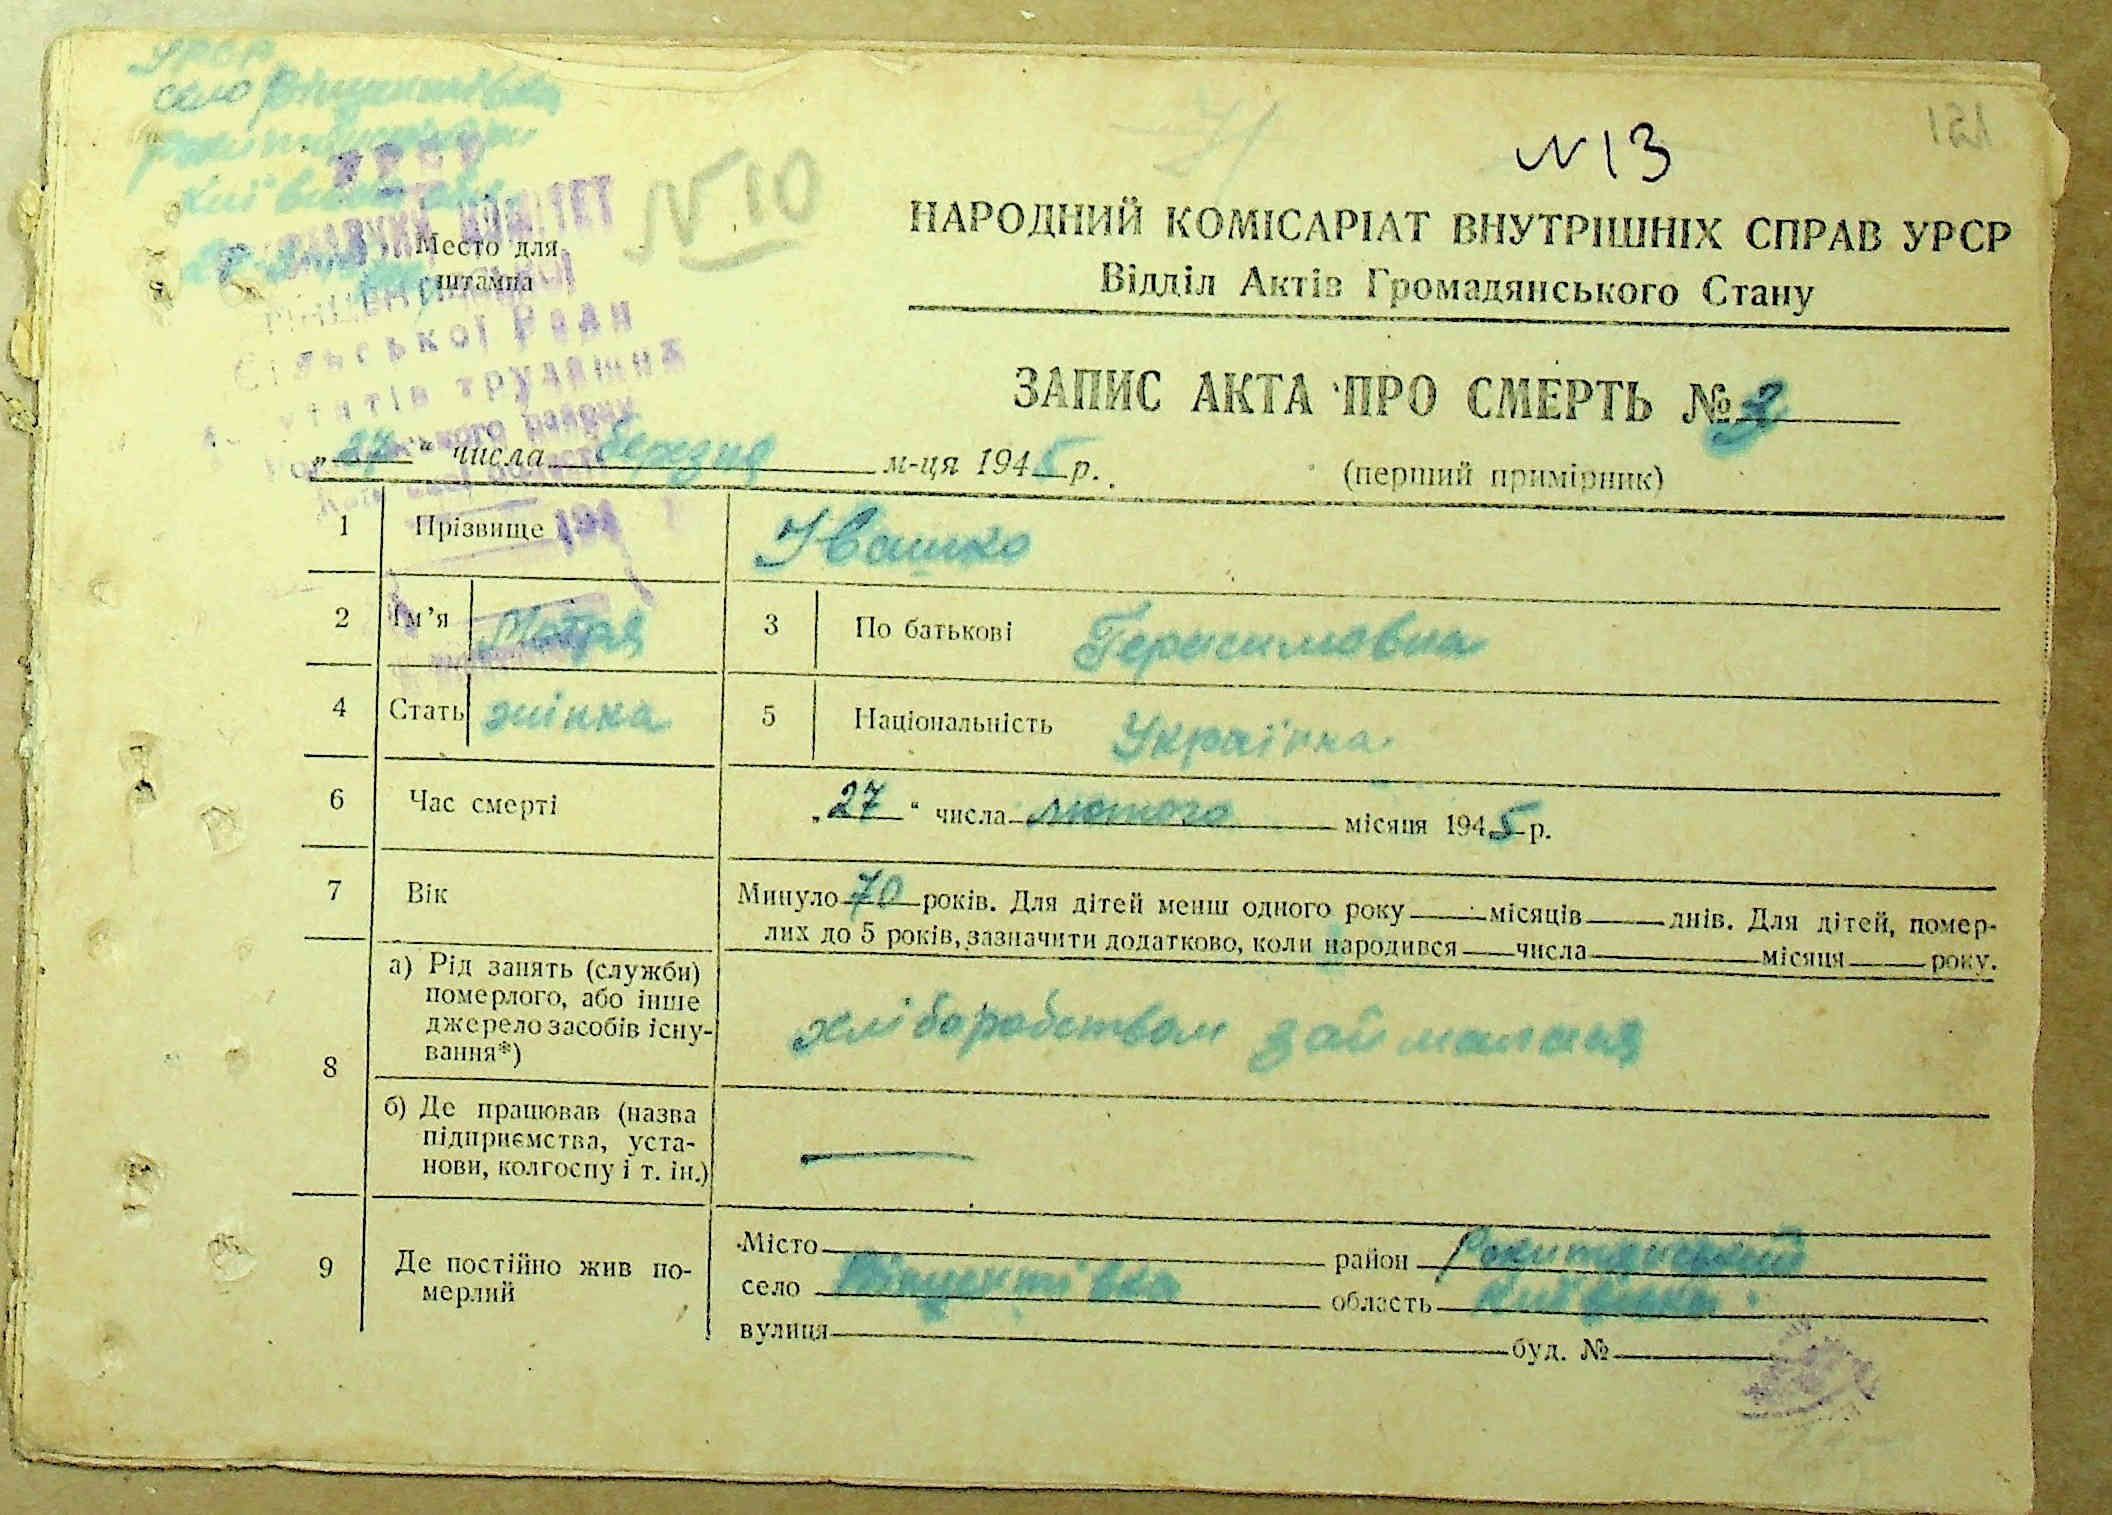 УРСР
село Вінцентівка
Київська обл.
151
N 13
N 10
Место для
штампа
Сільської Ради
НАРОДНИЙ КОМІСАРІАТ ВНУТРІШНІХ СПРАВ УРСР
Відділ Актів Громадянського Стану
ЗАПИС АКТА ПРО СМЕРТЬ №
„27“ числа березня м-ця 1945 р.
(перший примірник)
1 Прізвище Івашко
2 Ім’я Мотря 3 По батькові Герасимовна
4 Стать жінка 5 Національність Українка.
6 Час смерті „27“ числа лютого місяця 1945 р.
7 Вік Минуло 70 років. Для дітей менш одного року місяців днів. Для дітей, помер-
лих до 5 років, зазначити додатково, коли народився числа місяця року.
8 а) Рід занять (служби)
померлого, або інше
джерело засобів існу-
вання*)
хліборобством займалася
б) Де працював (назва
підприємства, уста-
нови, колгоспу і т. ін.)
9 Де постійно жив по-
мерлий
Місто район Рокитянський
село Вінцентівка область Київська.
вулиця буд. №